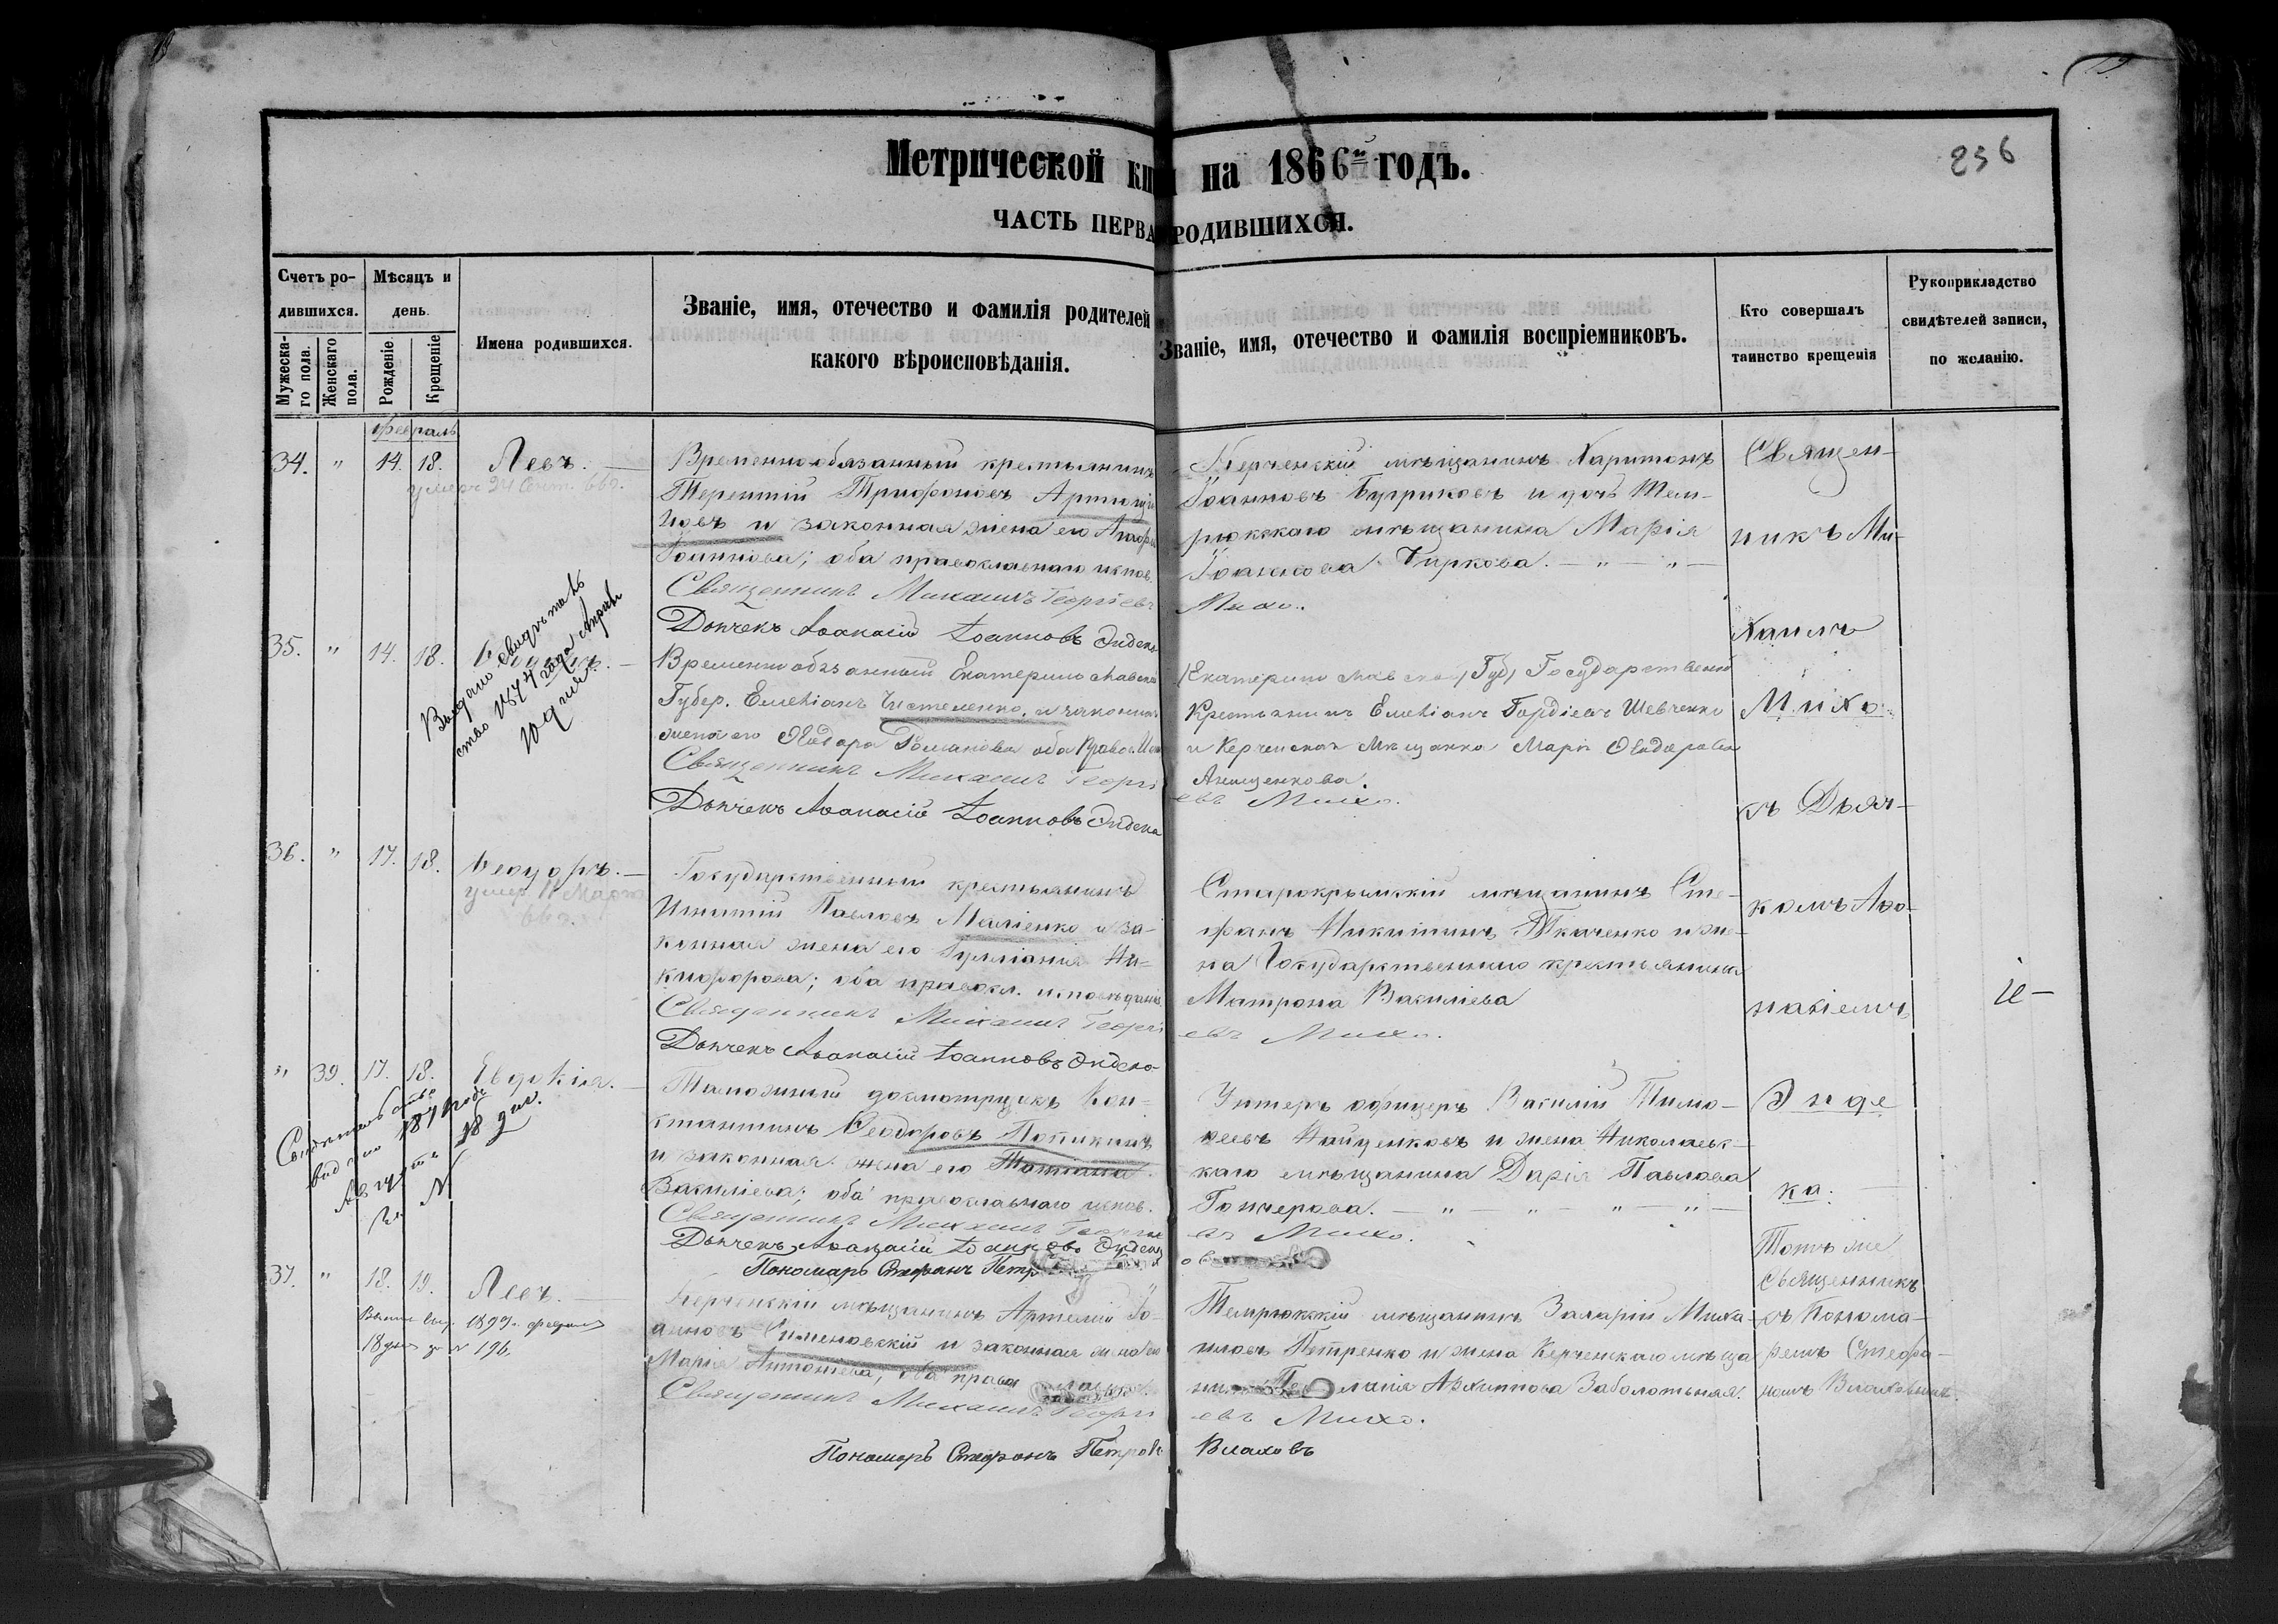 Метрической кни на 1866 годъ.
236
ЧАСТЬ ПЕРВА РОДИВШИХСЯ.
Счетъ ро-
дившихся.
Мужеска-
го пола.
Женскаго
пола.
Мѣсяцъ и
день.
Рожденіе.
Крещеніе
Имена родившихся.
Званіе, имя, отечество и фамилія родителей
какого вѣроисповѣданія.
Званіе, имя, отечество и фамилія воспріемниковъ.
Кто совершалъ
таинство крещенія
Рукоприкладство
свидѣтелей записи,
по желанію.
Февраль
34. " 14. 18. Левъ.
умеръ 24 66г.
Временно-обязанный крестьянинъ
Терентій Трифоновъ
и законная жена его
Іоаннова; оба православнаго испов.
Священникъ Михаилъ Георгіевъ Михо.
Дьячекъ Аѳанасій Іоанновъ Эндека
Керченскій мѣщанинъ Харитонъ
Іоанновъ и дочь Тем-
рюкскаго мѣщанина Марія
Іоаннова Биркова. — " — " —
Священ-
никъ Ми-
хаилъ
Михо
съ Дьяч-
комъ Аѳа-
насіемъ
Энде
ка.
35. " 14. 18.
Выдано свидѣтель
ство 1874 года
10 дня.
Временнообязанный Екатеринославской
Губер. Емеліанъ Чистеленко, и законная
жена его Ѳеодора Романова оба Правос. Исп
Священникъ Михаилъ Георгі
евъ Михо.
Дьячекъ Аѳанасій Іоанновъ Эндека
Екатеринославской Губ, Государственной
Крестьянинъ Емеліанъ Гордіевъ Шевченко
и Керченская Мѣщанка Марія Ѳеодорова
Анищенкова.
36. " 17. 18. Ѳеодоръ.
умер 11 Марта
66г.
Государственный крестьянинъ
Игнатій Павловъ и за-
конная жена его Іулліанія Ни-
кифорова; оба правосл. исповѣданія
Священникъ Михаилъ Георгі
евъ Михо.
Дьячекъ Аѳанасій Іоанновъ Эндека
Старокрымскій мѣщанинъ Сте-
фанъ Никитинъ Ткаченко и же-
на Государственнаго крестьянина
Матрона Василіева
" 39. 17. 18. Евдокія.
Свидетельство
видано 1871 года
Августа
за N 18 дня.
Таможенный досмотрщикъ Кон-
стантинъ Ѳеодоровъ
и законная жена его Татіана
Василіева; оба православнаго испов.
Священникъ Михаилъ Георгіе
въ Михо.
Дьячекъ Аѳанасій Іоанновъ Эндека
Пономарь Стефанъ Петр
Унтеръ офицеръ Василій Тимо-
ѳеевъ Найденковъ и жена Николаевс-
каго мѣщанина Дарія Павлова
Гончерова. — " — " — " — " —
37. " 18. 19. Левъ.
1899. февраля
18 дня за N 196.
Керченскій мѣщанинъ Артемій Іо-
анновъ Сименовскій и законная жена его
Марія Антоніева, оба право
Священникъ Михаилъ Георгі
евъ Михо.
Пономарь Стефанъ Петровъ Влаховъ
Темрюкскій мѣщанинъ Захарій Миха-
иловъ Петренко и жена Керченскаго мѣща
Архиппова Заболотьная.
Тотъ же
Священникъ
съ Понома-
ремъ Стефа-
номъ Влаховымъ.